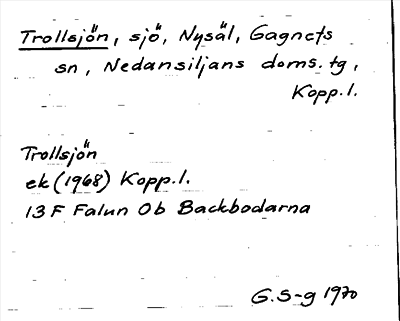 Trollsjön, sjö, Nysäl, Gagnefs
sn, Nedansiljans doms. tg,
Kopp.l.
Trollsjön
ek (1968) Kopp.l.
13 F Falun Ob Backbodarna
G.S-g 1970